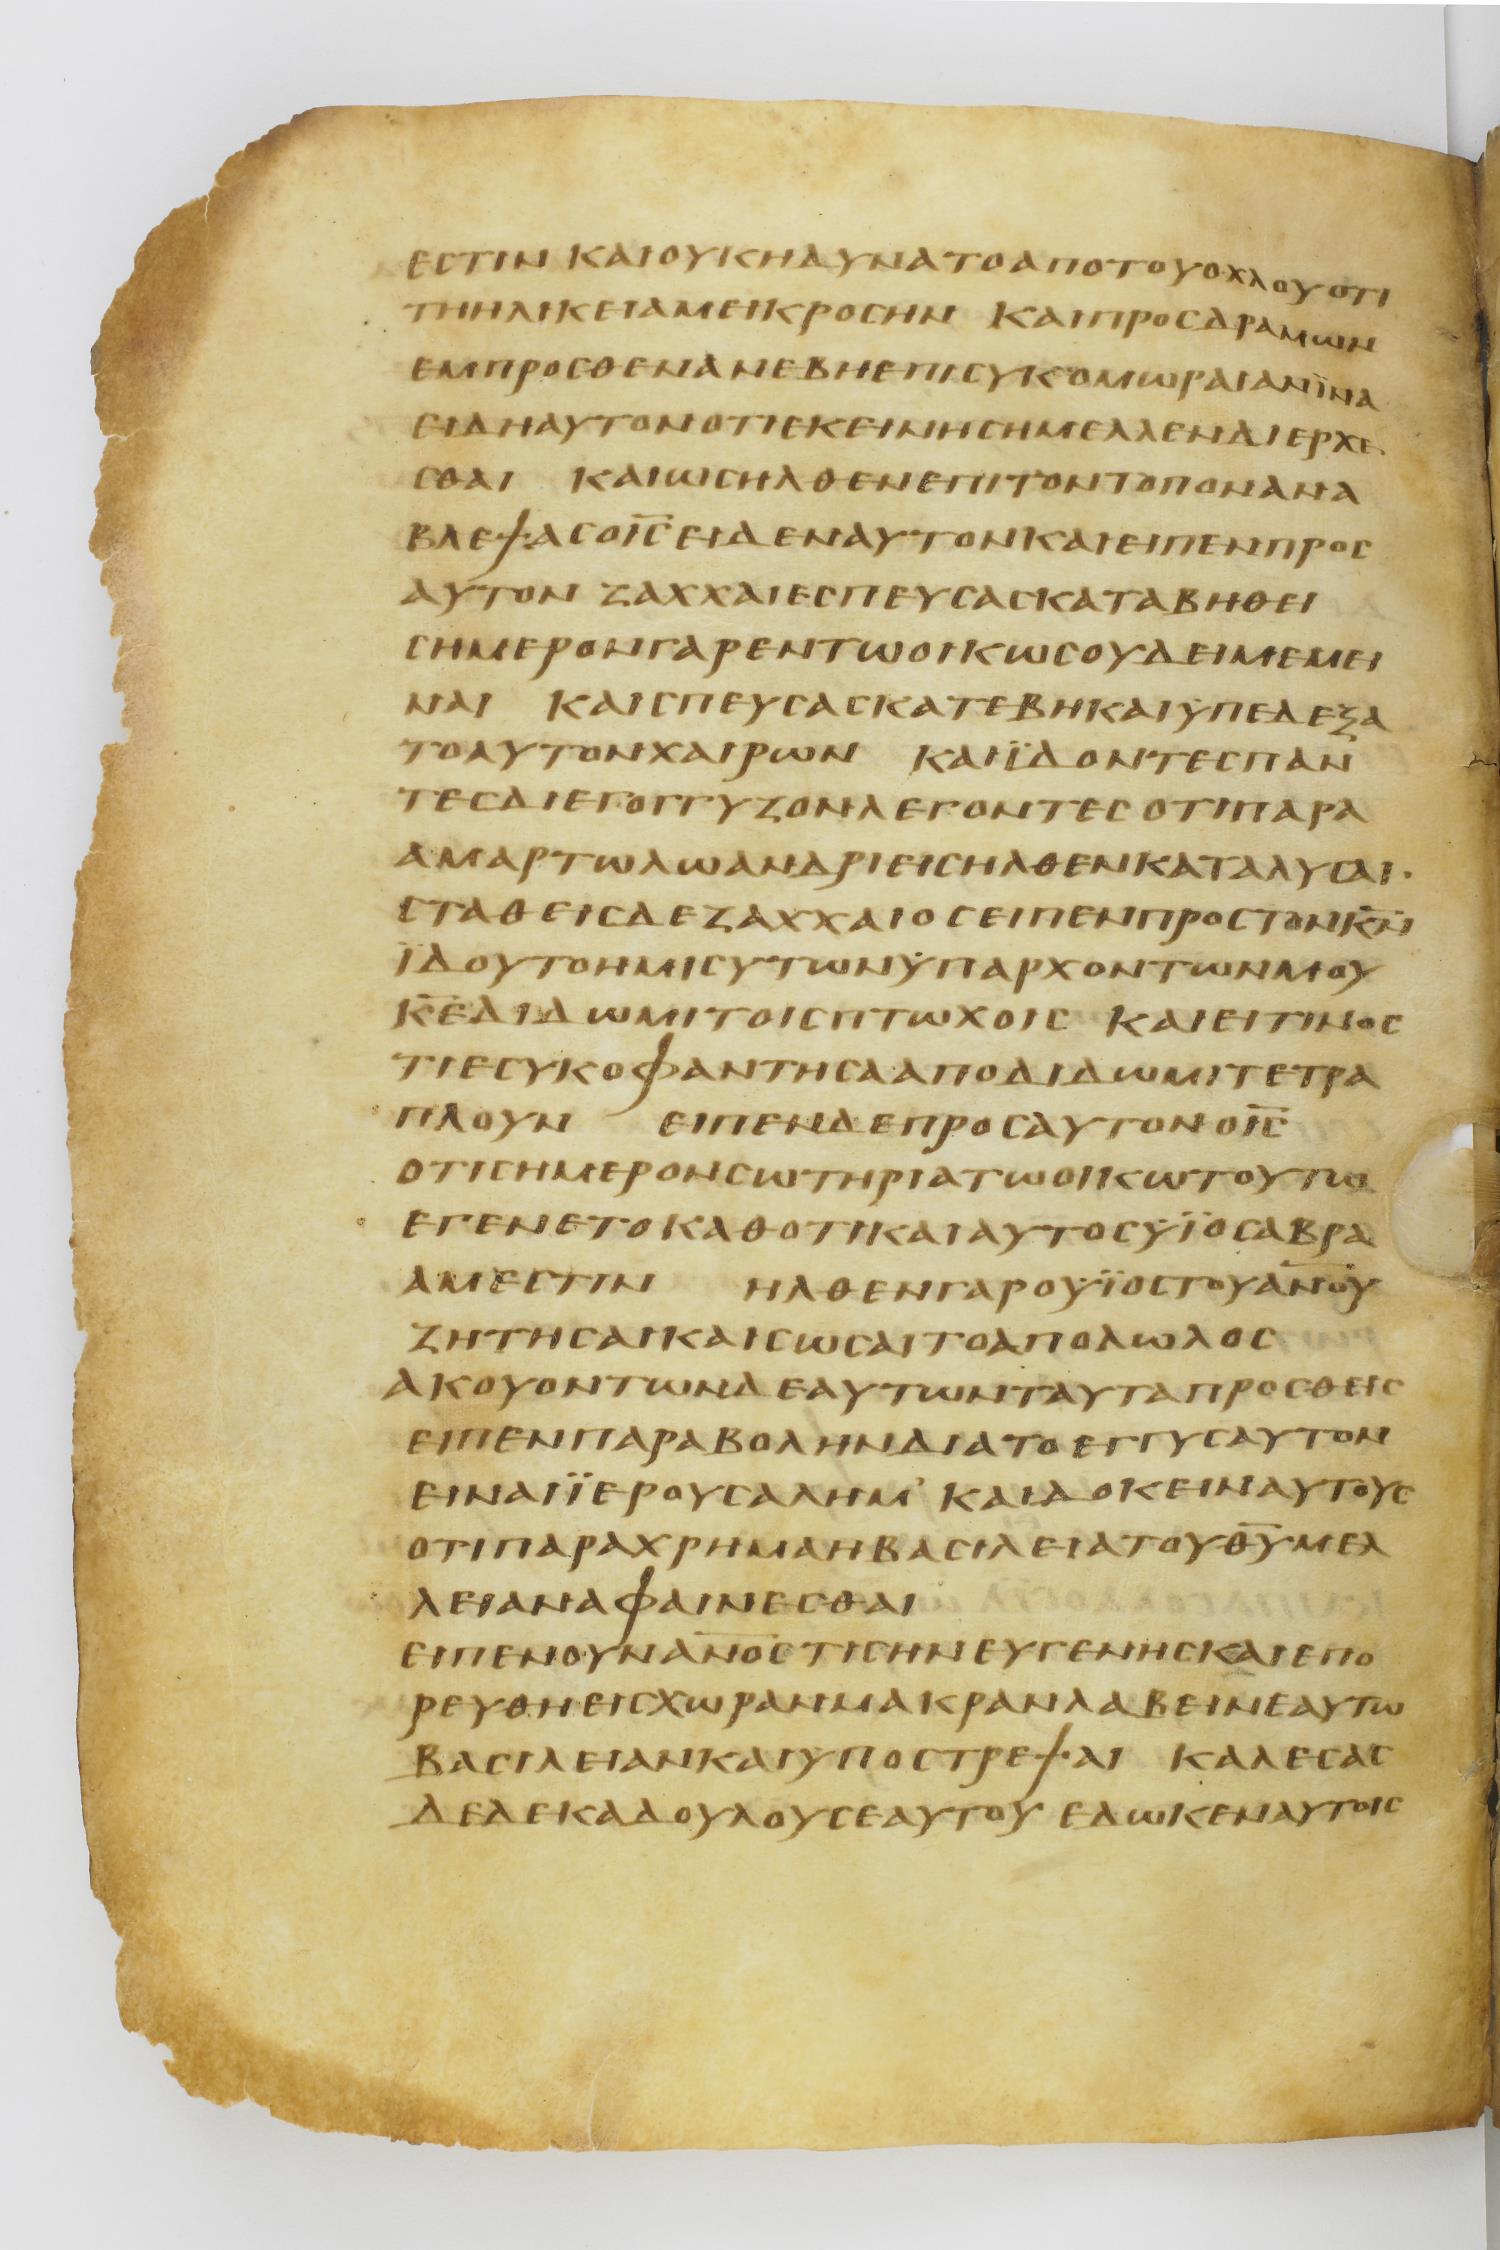 ΕСΤΙΝ ΚΑΙΟΥΚΗΔΥΝΑΤΟΑΠΟΤΟΥΟΧΛΟΥΟΤΙ
ΤΗΗΛΙΚΕΙΑΜΕΙΚΡΟСΗΝ ΚΑΙΠΡΟСΔΡΑΜΩΝ
ΕΜΠΡΟСΘΕΝΑΝΕΒΗΕΠΙСΥΚΟΜΩΡΑΙΑΝΪΝΑ
ΕΙΔΗΑΥΤΟΝΟΤΙΕΚΕΙΝΗСΗΜΕΛΛΕΝΔΙΕΡΧΕ
СΘΑΙ ΚΑΙΩСΗΛΘΕΝΕΠΙΤΟΝΤΟΠΟΝΑΝΑ
ΒΛΕΨΑСΟΙ̅С̅ΕΙΔΕΝΑΥΤΟΝΚΑΙΕΙΠΕΝΠΡΟС
ΑΥΤΟΝ ΖΑΧΧΑΙΕСΠΕΥСΑСΚΑΤΑΒΗΘΕΙ
СΗΜΕΡΟΝΓΑΡΕΝΤΩΟΙΚΩСΟΥΔΕΙΜΕΜΕΙ
ΝΑΙ ΚΑΙСΠΕΥСΑСΚΑΤΕΒΗΚΑΙΫΠΕΔΕΞΑ
ΤΟΑΥΤΟΝΧΑΙΡΩΝ ΚΑΙΪΔΟΝΤΕСΠΑΝ
ΤΕСΔΙΕΓΟΓΓΥΖΟΝΛΕΓΟΝΤΕС ΟΤΙΠΑΡΑ
ΑΜΑΡΤΩΛΩΑΝΔΡΙΕΙСΗΛΘΕΝΚΑΤΑΛΥСΑΙ·
СΤΑΘΕΙСΔΕΖΑΧΧΑΙΟСΕΙΠΕΝΠΡΟСΤΟΝΚ̅Ν̅
ΪΔΟΥΤΟΗΜΙСΥΤΩΝΫΠΑΡΧΟΝΤΩΝΜΟΥ
Κ̅Ε̅ΔΙΔΩΜΙΤΟΙСΠΤΩΧΟΙС ΚΑΙΕΙΤΙΝΟС
ΤΙΕСΥΚΟΦΑΝΤΗСΑΑΠΟΔΙΔΩΜΙΤΕΤΡΑ
ΠΛΟΥΝ ΕΙΠΕΝΔΕΠΡΟСΑΥΤΟΝΟΙ̅С̅
ΟΤΙСΗΜΕΡΟΝСΩΤΗΡΙΑΤΩΟΙΚΩΤΟΥΤΩ
ΕΓΕΝΕΤΟΚΑΘΟΤΙΚΑΙΑΥΤΟСΫΪΟСΑΒΡΑ
ΑΜΕСΤΙΝ ΗΛΘΕΝΓΑΡΟΫΪΟСΤΟΥΑ̅Ν̅Ο̅Υ̅
ΖΗΤΗСΑΙΚΑΙСΩСΑΙΤΟΑΠΟΛΩΛΟС
ΑΚΟΥΟΝΤΩΝΔΕΑΥΤΩΝΤΑΥΤΑΠΡΟСΘΕΙС
ΕΙΠΕΝΠΑΡΑΒΟΛΗΝΔΙΑΤΟΕΓΓΥСΑΥΤΟΝ
ΕΙΝΑΙΪΕΡΟΥСΑΛΗΜ’ ΚΑΙΔΟΚΕΙΝΑΥΤΟΥС
ΟΤΙΠΑΡΑΧΡΗΜΑΗΒΑСΙΛΕΙΑΤΟΥΘ̅Υ̅ΜΕΛ
ΛΕΙΑΝΑΦΑΙΝΕСΘΑΙ
ΕΙΠΕΝΟΥΝΑ̅Ν̅Ο̅С̅ΤΙСΗΝΕΥΓΕΝΗСΚΑΙΕΠΟ
ΡΕΥΘΗΕΙСΧΩΡΑΝΜΑΚΡΑΝΛΑΒΕΙΝΕΑΥΤΩ
ΒΑСΙΛΕΙΑΝΚΑΙΥΠΟСΤΡΕΨΑΙ ΚΑΛΕСΑС
ΔΕΔΕΚΑΔΟΥΛΟΥСΕΑΥΤΟΥ ΕΔΩΚΕΝΑΥΤΟΙС